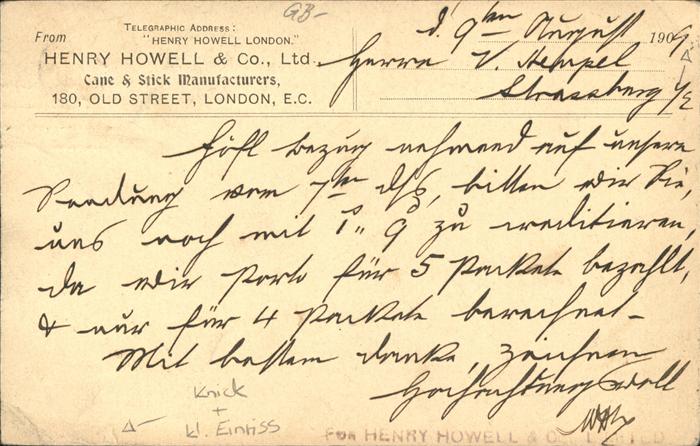 GB-
From
TELEGRAPHIC ADDRESS:
"HENRY HOWELL LONDON."
HENRY HOWELL & Co., Ltd.
Cane & Stick Manufacturers,
180, OLD STREET, LONDON, E.C.
d. 9ten August 1904
Herrn V. Hempel
Strassburg i/E
Höfl bezug nehmend auf unsere
Sendung vom 7ten ds, bitten wir Sie,
uns noch mit 1s,, 9d zu creditieren,
da wir Porto für 5 Packete bezahlt,
& nur für 4 Packete berechnet -
Mit bestem Danke, zeichnen
Hochachtungsvoll
Knick
+
kl. Einriss
FOR HENRY HOWELL & CO., LIMITED